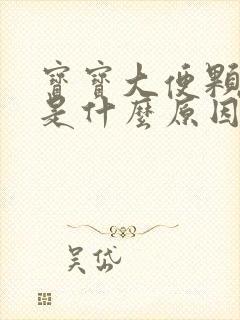 寶寶大便顆
是什麼原因
吳岱